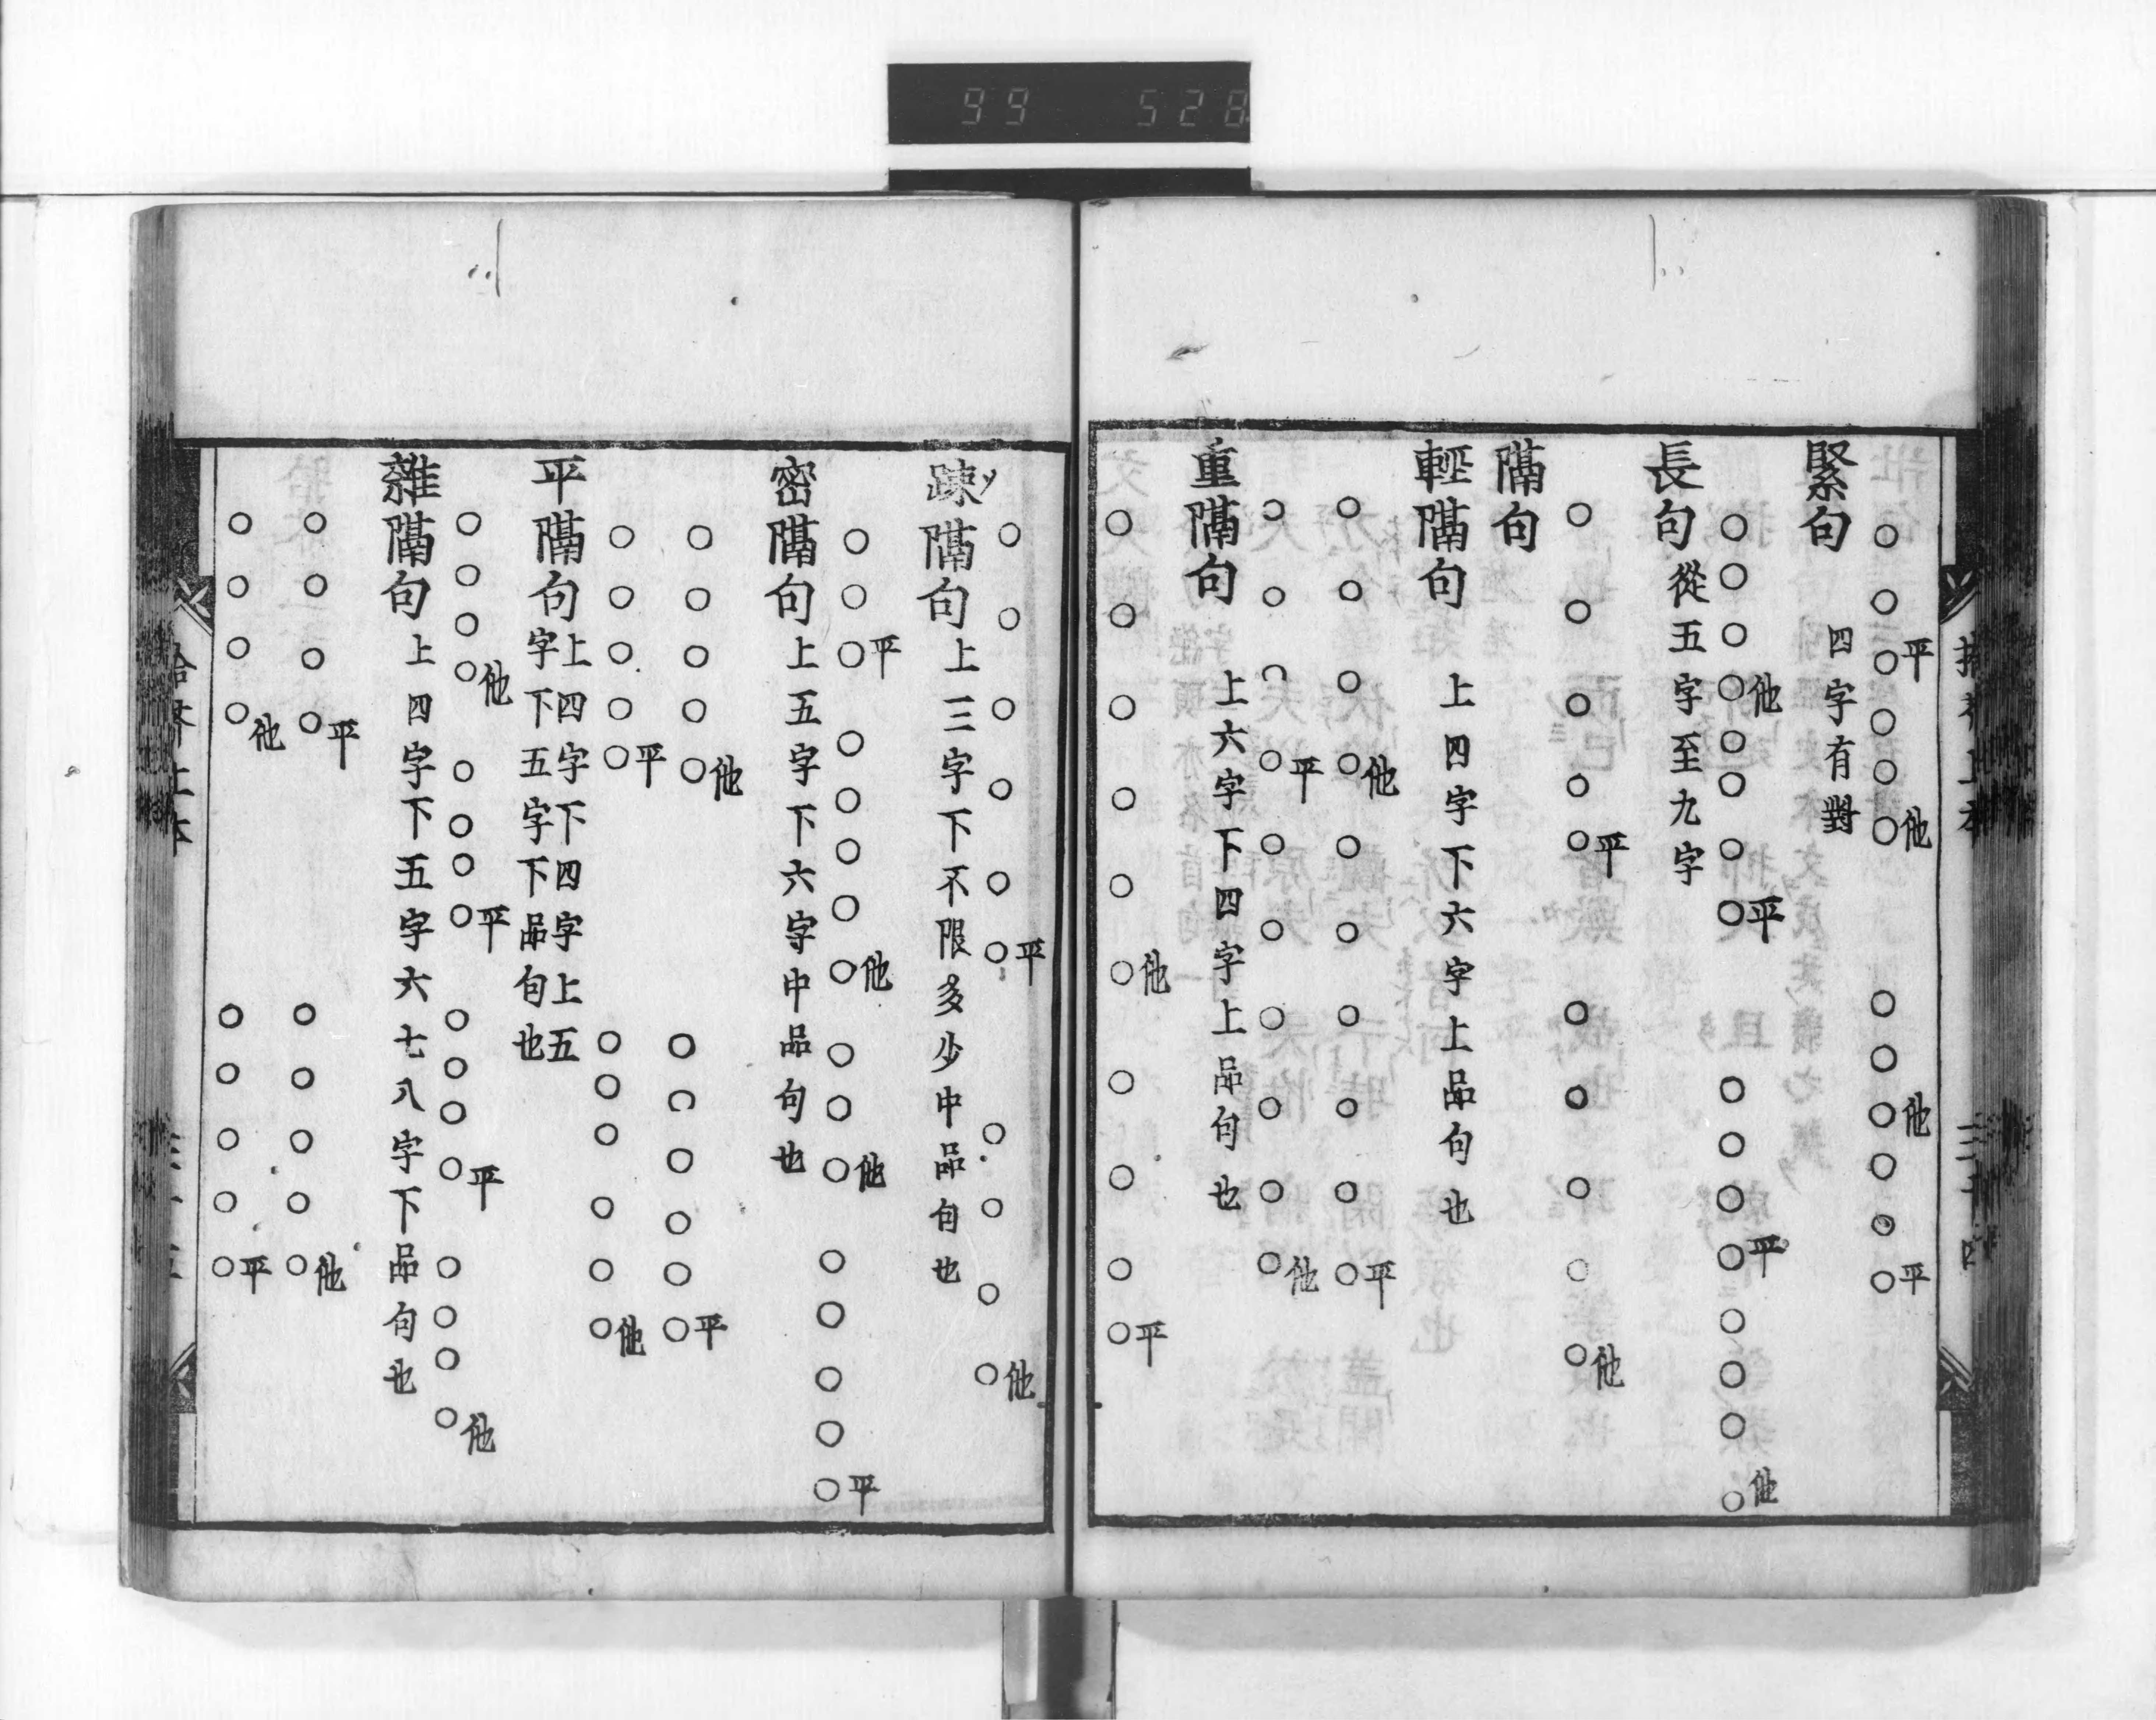 99 528
○○○平○○○他 ○○○他○○○平
緊句 四字有對
○○○○他○○○○平 ○○○○平○○○○他
長句從五字至九字
○○○○○平 ○○○○○他
隔句
輕隔句 上四字下六字上品句也
○○○○他○○○○○○平
○○○○平○○○○○○他
重隔句 上六字下四字上品句也
○○○○○○他 ○○○○平
○○○○○○平 ○○○○他
踈隔句上三字下不限多少中品句也
○○○平 ○○○○○他 ○○○他 ○○○○○平
密隔句上五字下六字中品句也
○○○○○他 ○○○○○○平
○○○○○平 ○○○○○○他
平隔句上四字下四字上五
字下五字下品句也
○○○○他 ○○○○平 ○○○○平 ○○○○他
雜隔句上四字下五字六七八字下品句也
○○○○平 ○○○○○他
○○○○他 ○○○○○平